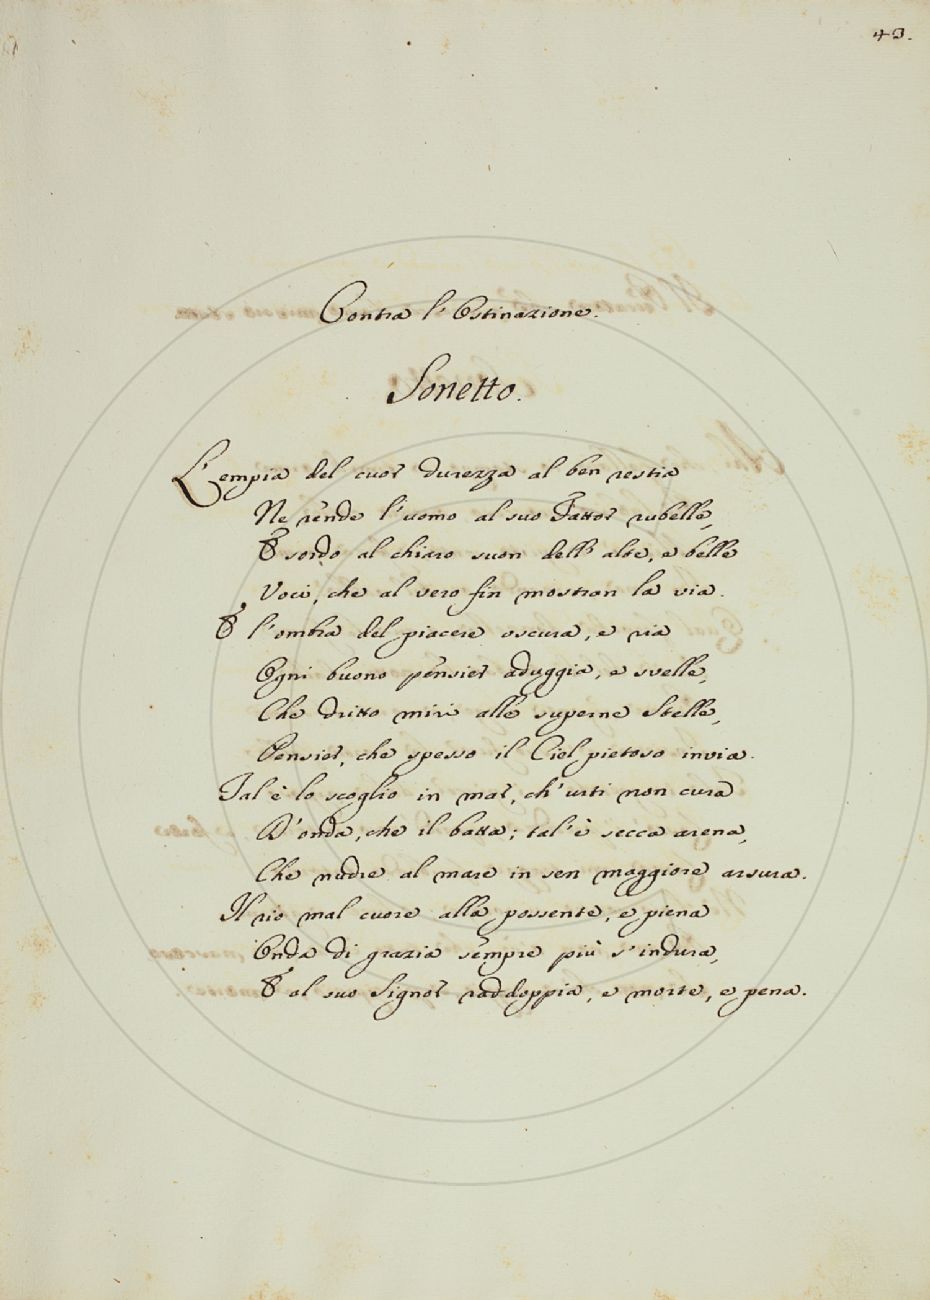 43.
Contra l'Ostinazione.
Sonetto.
L'empia del cuor durezza al ben restia
Ne rende l'uomo al suo Fattor rubelle,
E sordo al chiaro suon dell'alte, e belle
Voci, che al vero fin mostran la via.
E l'ombra del piacere oscura, e ria
Ogni buono pensier aduggia, e svelle,
Che dritto miri alle superne Stelle,
Pensier, che spesso il Ciel pietoso invia.
Tal è lo scoglio in mar, ch'urti non cura
D'onda, che il batta; tal'è secca arena,
Che nudre al mare in sen maggiore arsura.
Il rio mal cuore alla possente, e piena
Onda di grazia sempre più s'indura,
E al suo Signor raddoppia, e morte, e pena.